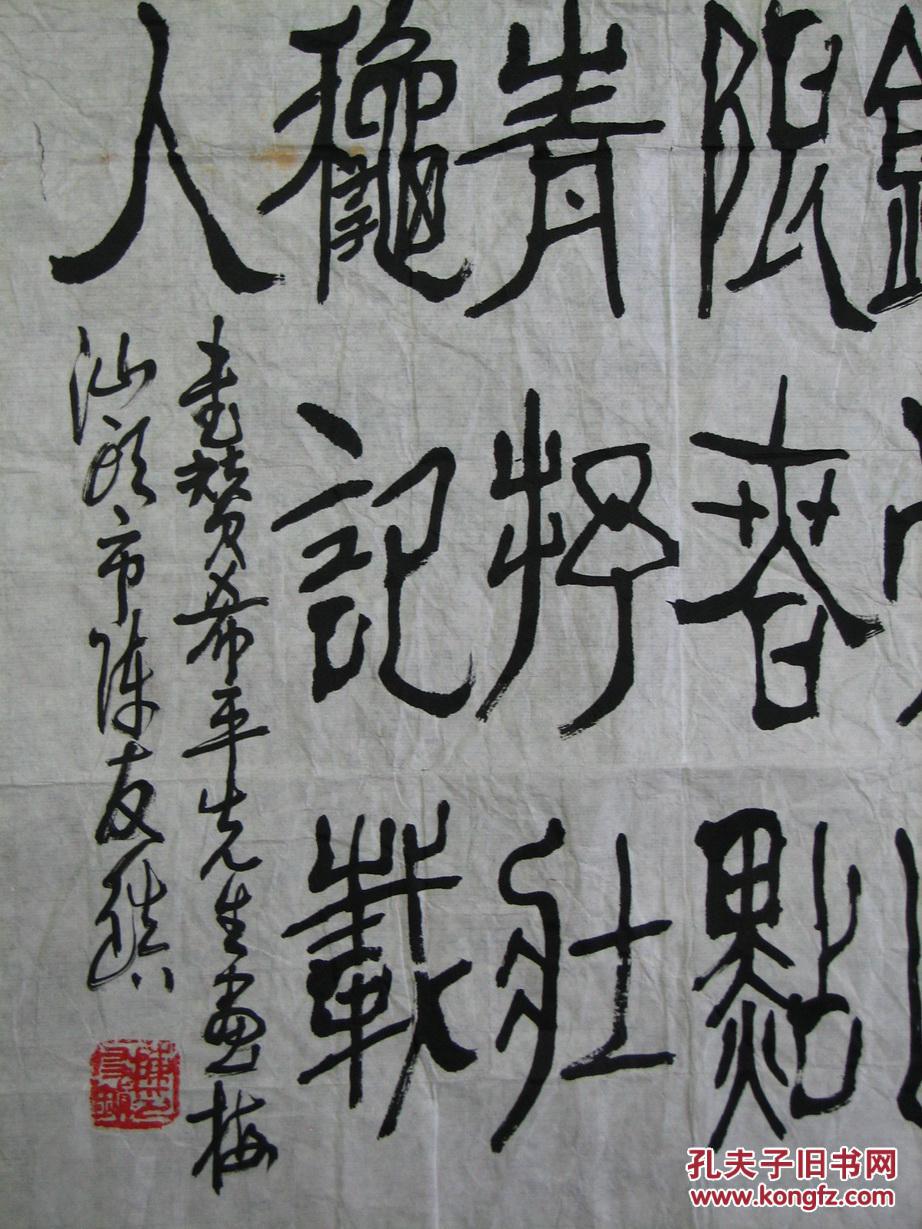 限春點
青將
龝記載
人
書贊希平先生畫梅
汕頭市陳友
孔夫子旧书网
www.kongfz.com